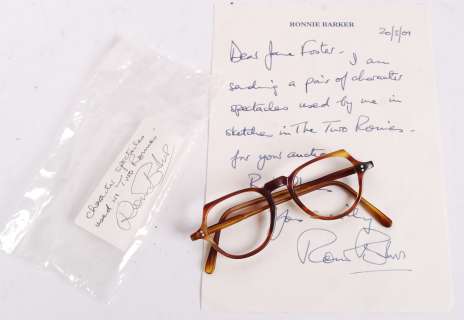 RONNIE BARKER
20/5/01
Dear Jane Foster - I am
sending a pair of character
spectacles used by me in
sketches in The Two Ronnies -
for your auction
Ronnie Barker
Character spectacles
used in "Two Ronnies"
Ronnie Barker